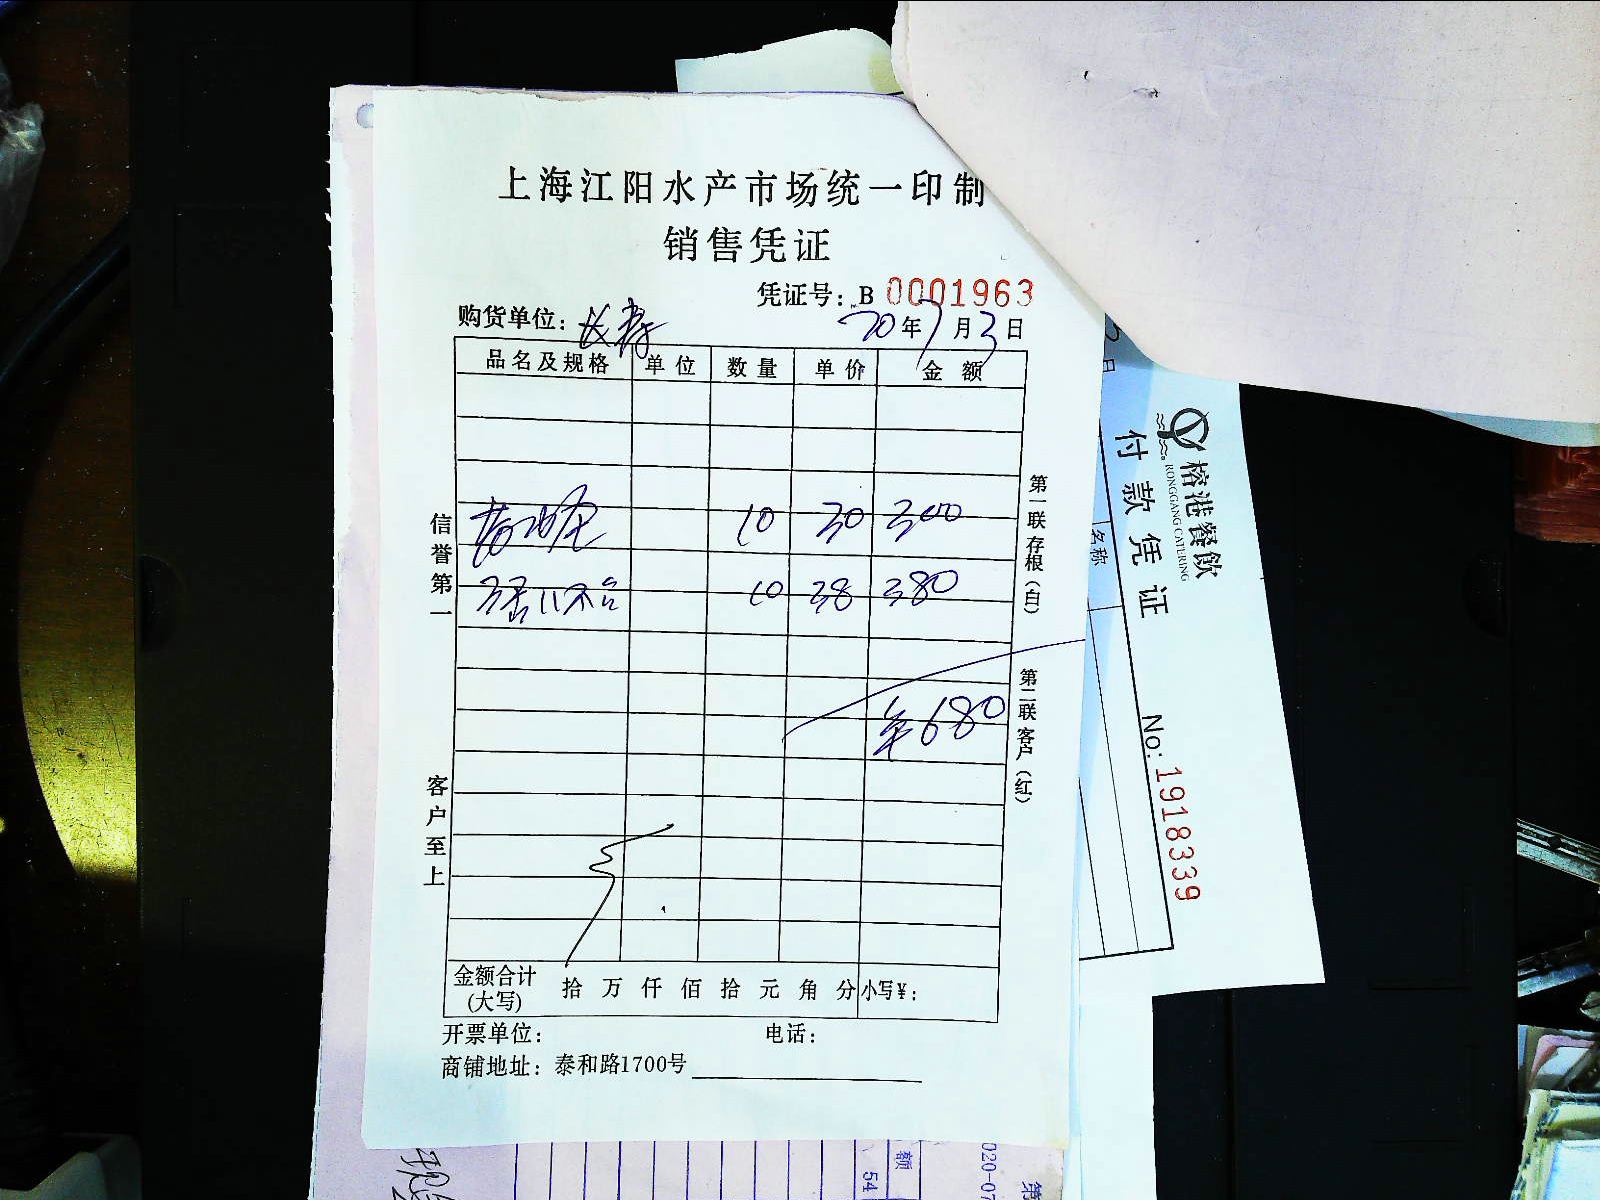 上海江阳水产市场统一印制
销售凭证
凭证号: B 0001963
购货单位: 长寿 20年7月3日
品名及规格 单位 数量 单价 金额
10 30 300
10 38 380
680
信誉第一
客户至上
第一联存根(白)
第二联客户(红)
金额合计(大写) 拾 万 仟 佰 拾 元 角 分 小写¥:
开票单位: 电话:
商铺地址: 泰和路1700号
榕港餐飲
RONGGANG CATERING
付款凭证
No: 1918339
名称
日
额
54
020-07
第